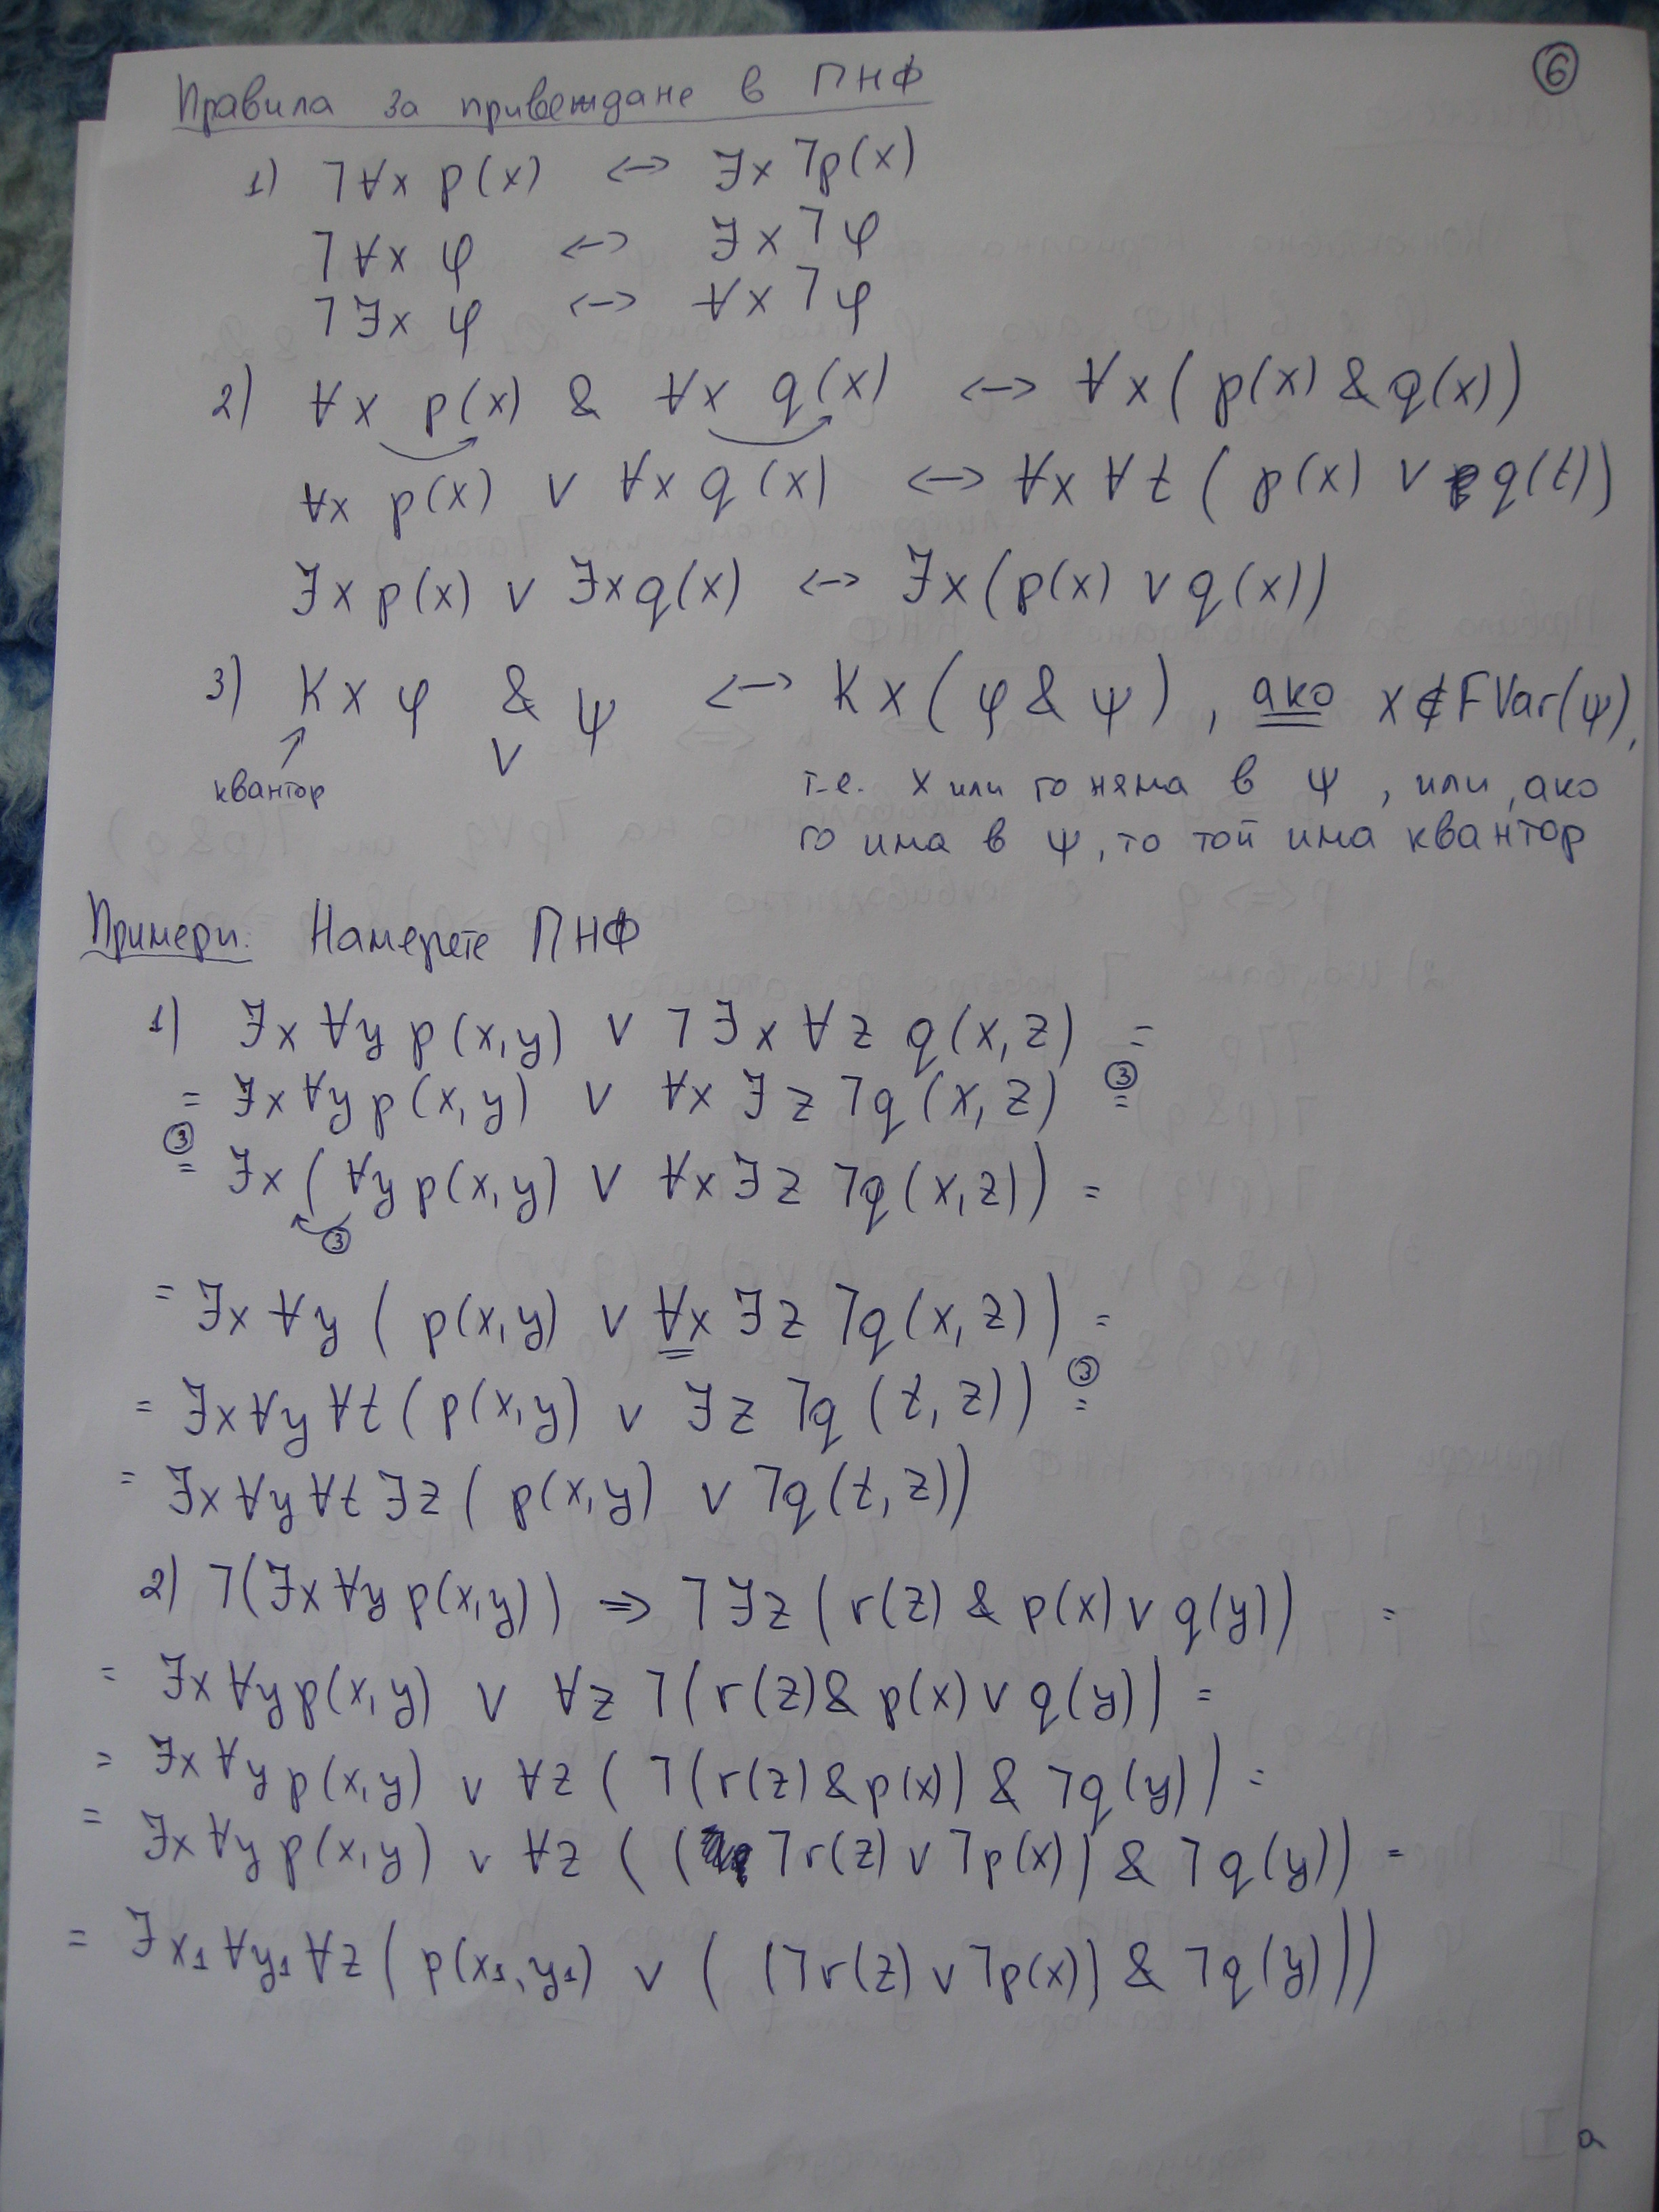 6
Правила за привеждане в ПНФ
1) ⅂∀x p(x) <-> ∃x ⅂p(x)
⅂∀x φ <-> ∃x ⅂φ
⅂∃x φ <-> ∀x ⅂φ
2) ∀x p(x) & ∀x q(x) <-> ∀x (p(x) & q(x))
∀x p(x) ∨ ∀x q(x) <-> ∀x ∀t (p(x) ∨ q(t))
∃x p(x) ∨ ∃x q(x) <-> ∃x (p(x) ∨ q(x))
3) Kx φ & ψ <-> Kx (φ & ψ), ако x ∉ FVar(ψ),
∨
квантор т.е. x или го няма в ψ, или, ако
го има в ψ, то той има квантор
Примери: Намерете ПНФ
1) ∃x ∀y p(x,y) ∨ ⅂∃x ∀z q(x,z) =
= ∃x ∀y p(x,y) ∨ ∀x ∃z ⅂q(x,z) ③=
③= ∃x (∀y p(x,y) ∨ ∀x ∃z ⅂q(x,z)) =
③
= ∃x ∀y (p(x,y) ∨ ∀x ∃z ⅂q(x,z)) =
= ∃x ∀y ∀t (p(x,y) ∨ ∃z ⅂q(t,z)) ③=
= ∃x ∀y ∀t ∃z (p(x,y) ∨ ⅂q(t,z))
2) ⅂(∃x ∀y p(x,y)) => ⅂∃z (r(z) & p(x) ∨ q(y)) =
= ∃x ∀y p(x,y) ∨ ∀z ⅂(r(z) & p(x) ∨ q(y)) =
= ∃x ∀y p(x,y) ∨ ∀z (⅂(r(z) & p(x)) & ⅂q(y)) =
= ∃x ∀y p(x,y) ∨ ∀z ((⅂r(z) ∨ ⅂p(x)) & ⅂q(y)) =
= ∃x₁ ∀y₁ ∀z (p(x₁,y₁) ∨ ((⅂r(z) ∨ ⅂p(x)) & ⅂q(y)))
a